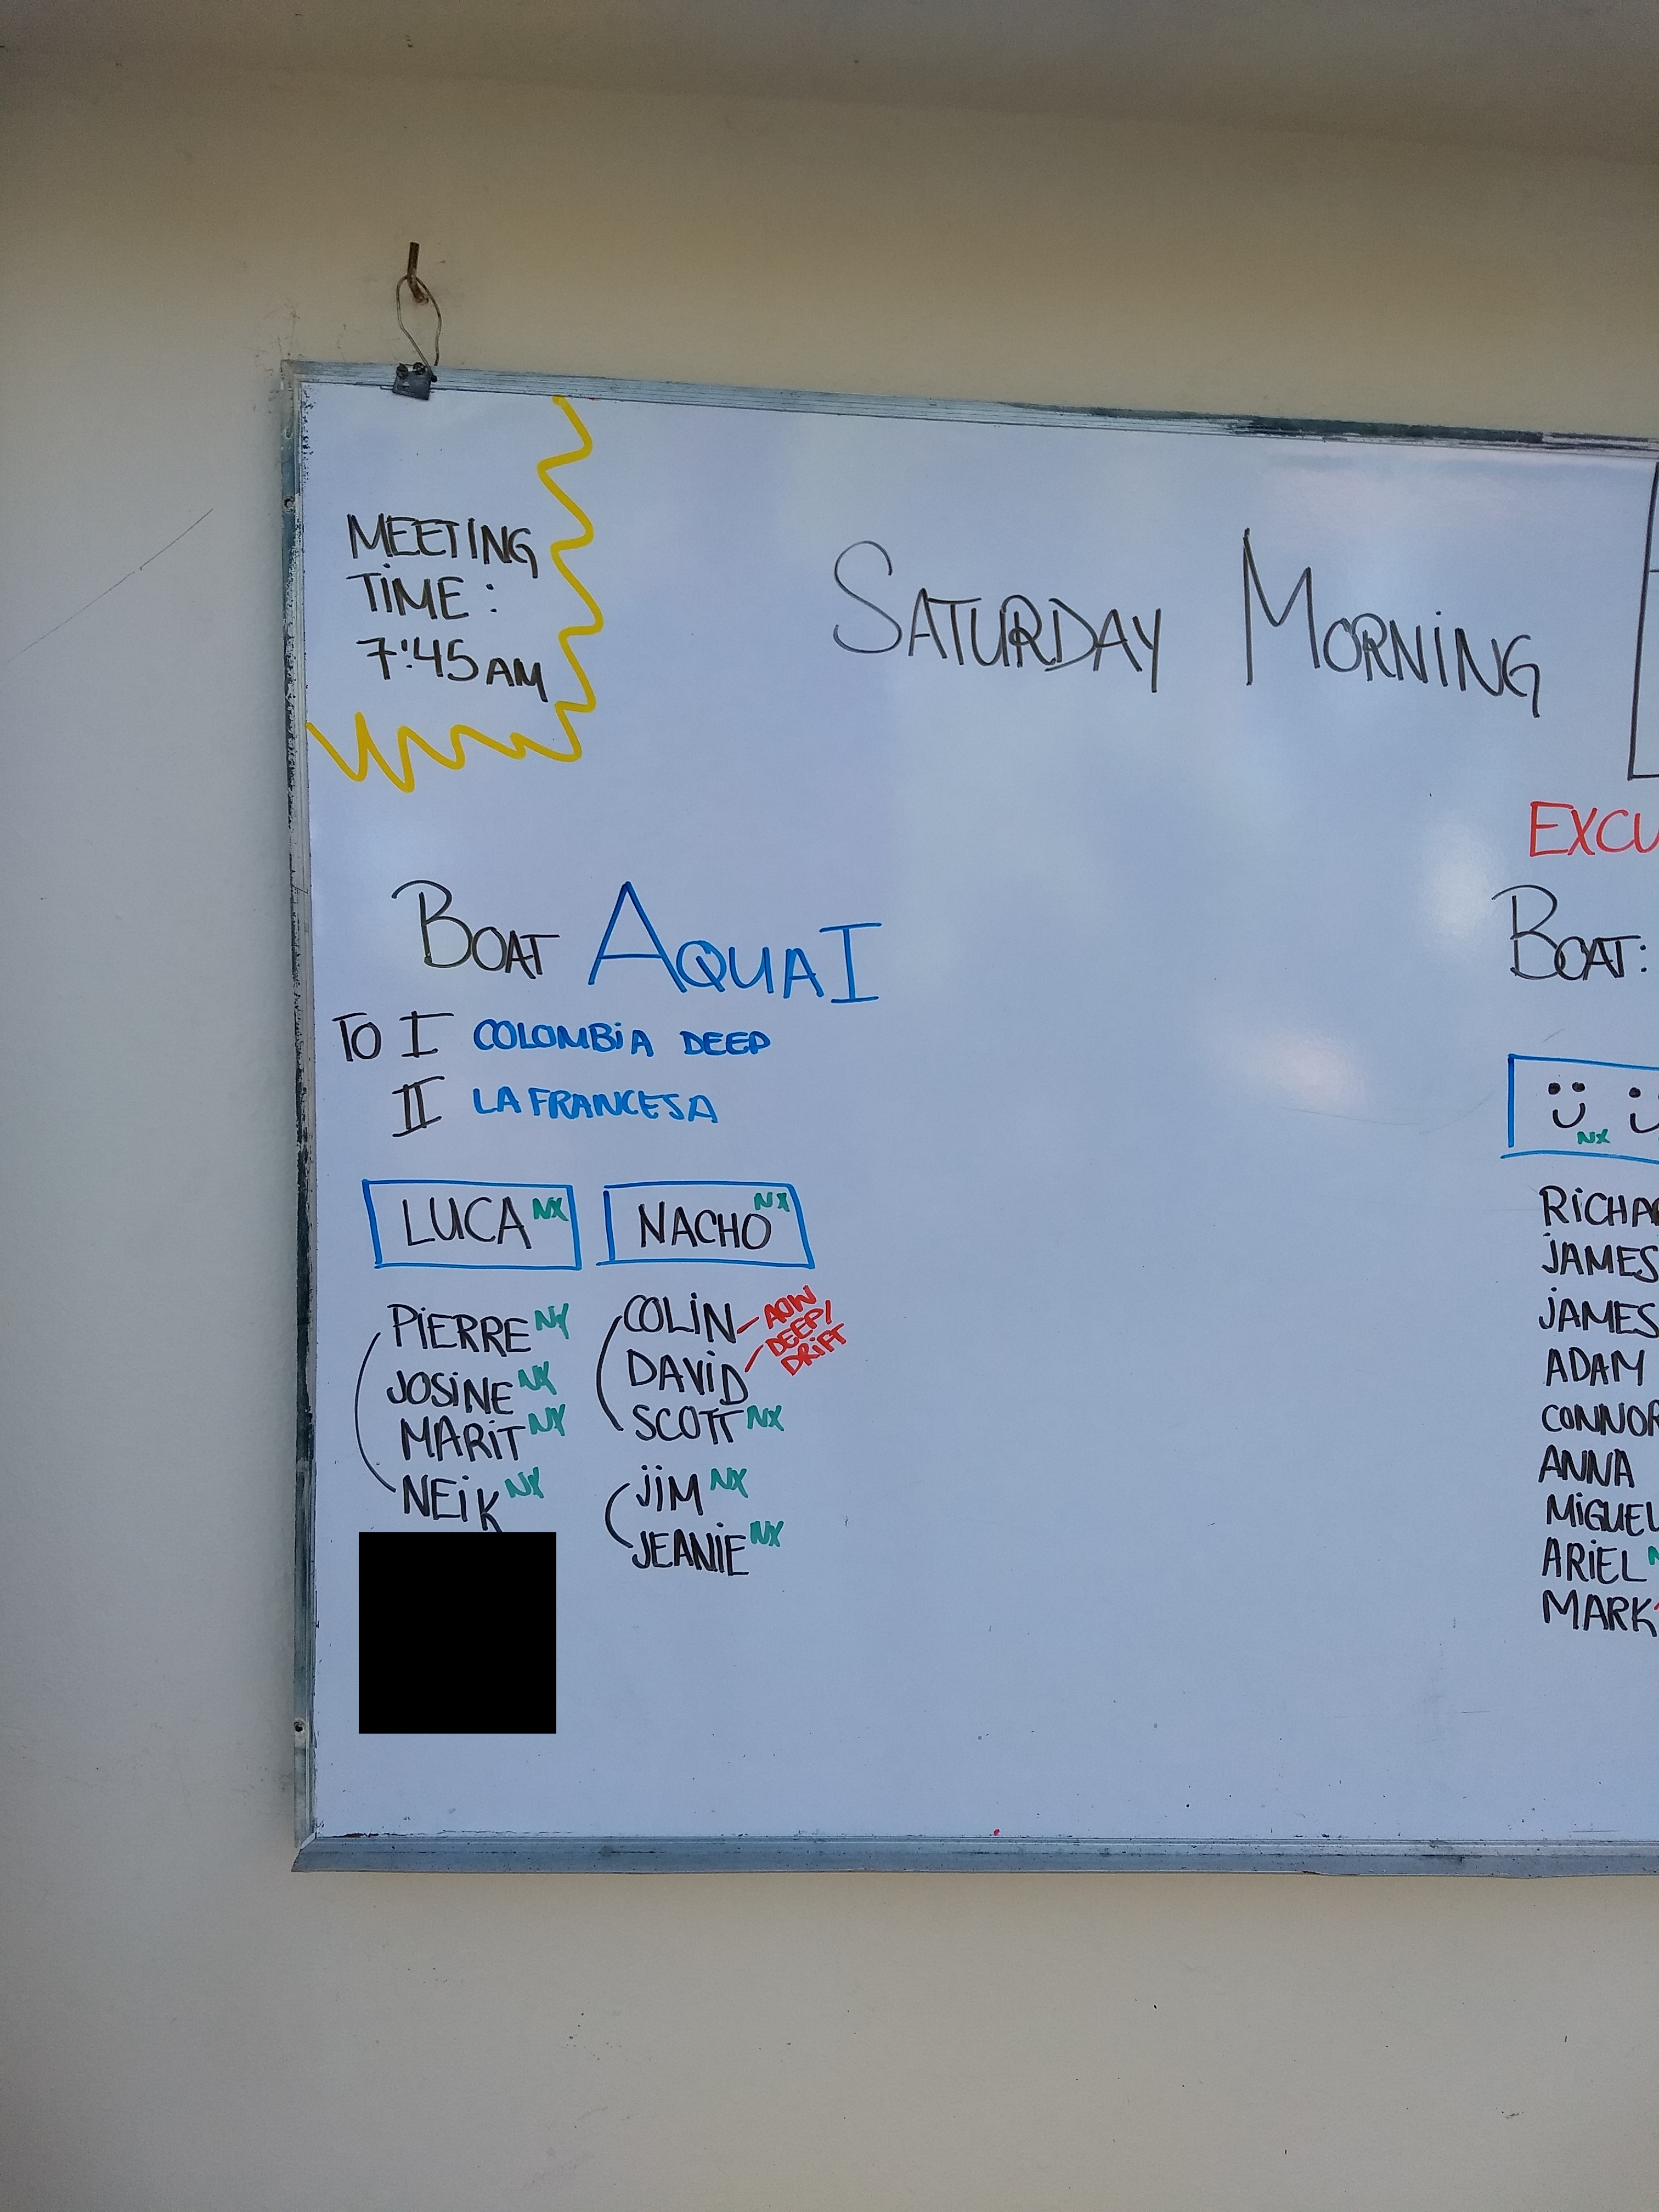 MEETING
TIME:
7:45 AM
SATURDAY MORNING
BOAT AQUA I
TO I COLOMBIA DEEP
II LA FRANCESA
LUCA NX
NACHO NX
PIERRE NX
JOSINE NX
MARIT NX
NEIK NX
COLIN
DAVID
AOW
DEEP/
DRIFT
SCOTT NX
JIM NX
JEANIE NX
BOAT:
NX
JAMES
JAMES
ADAM
ANNA
ARIEL
MARK